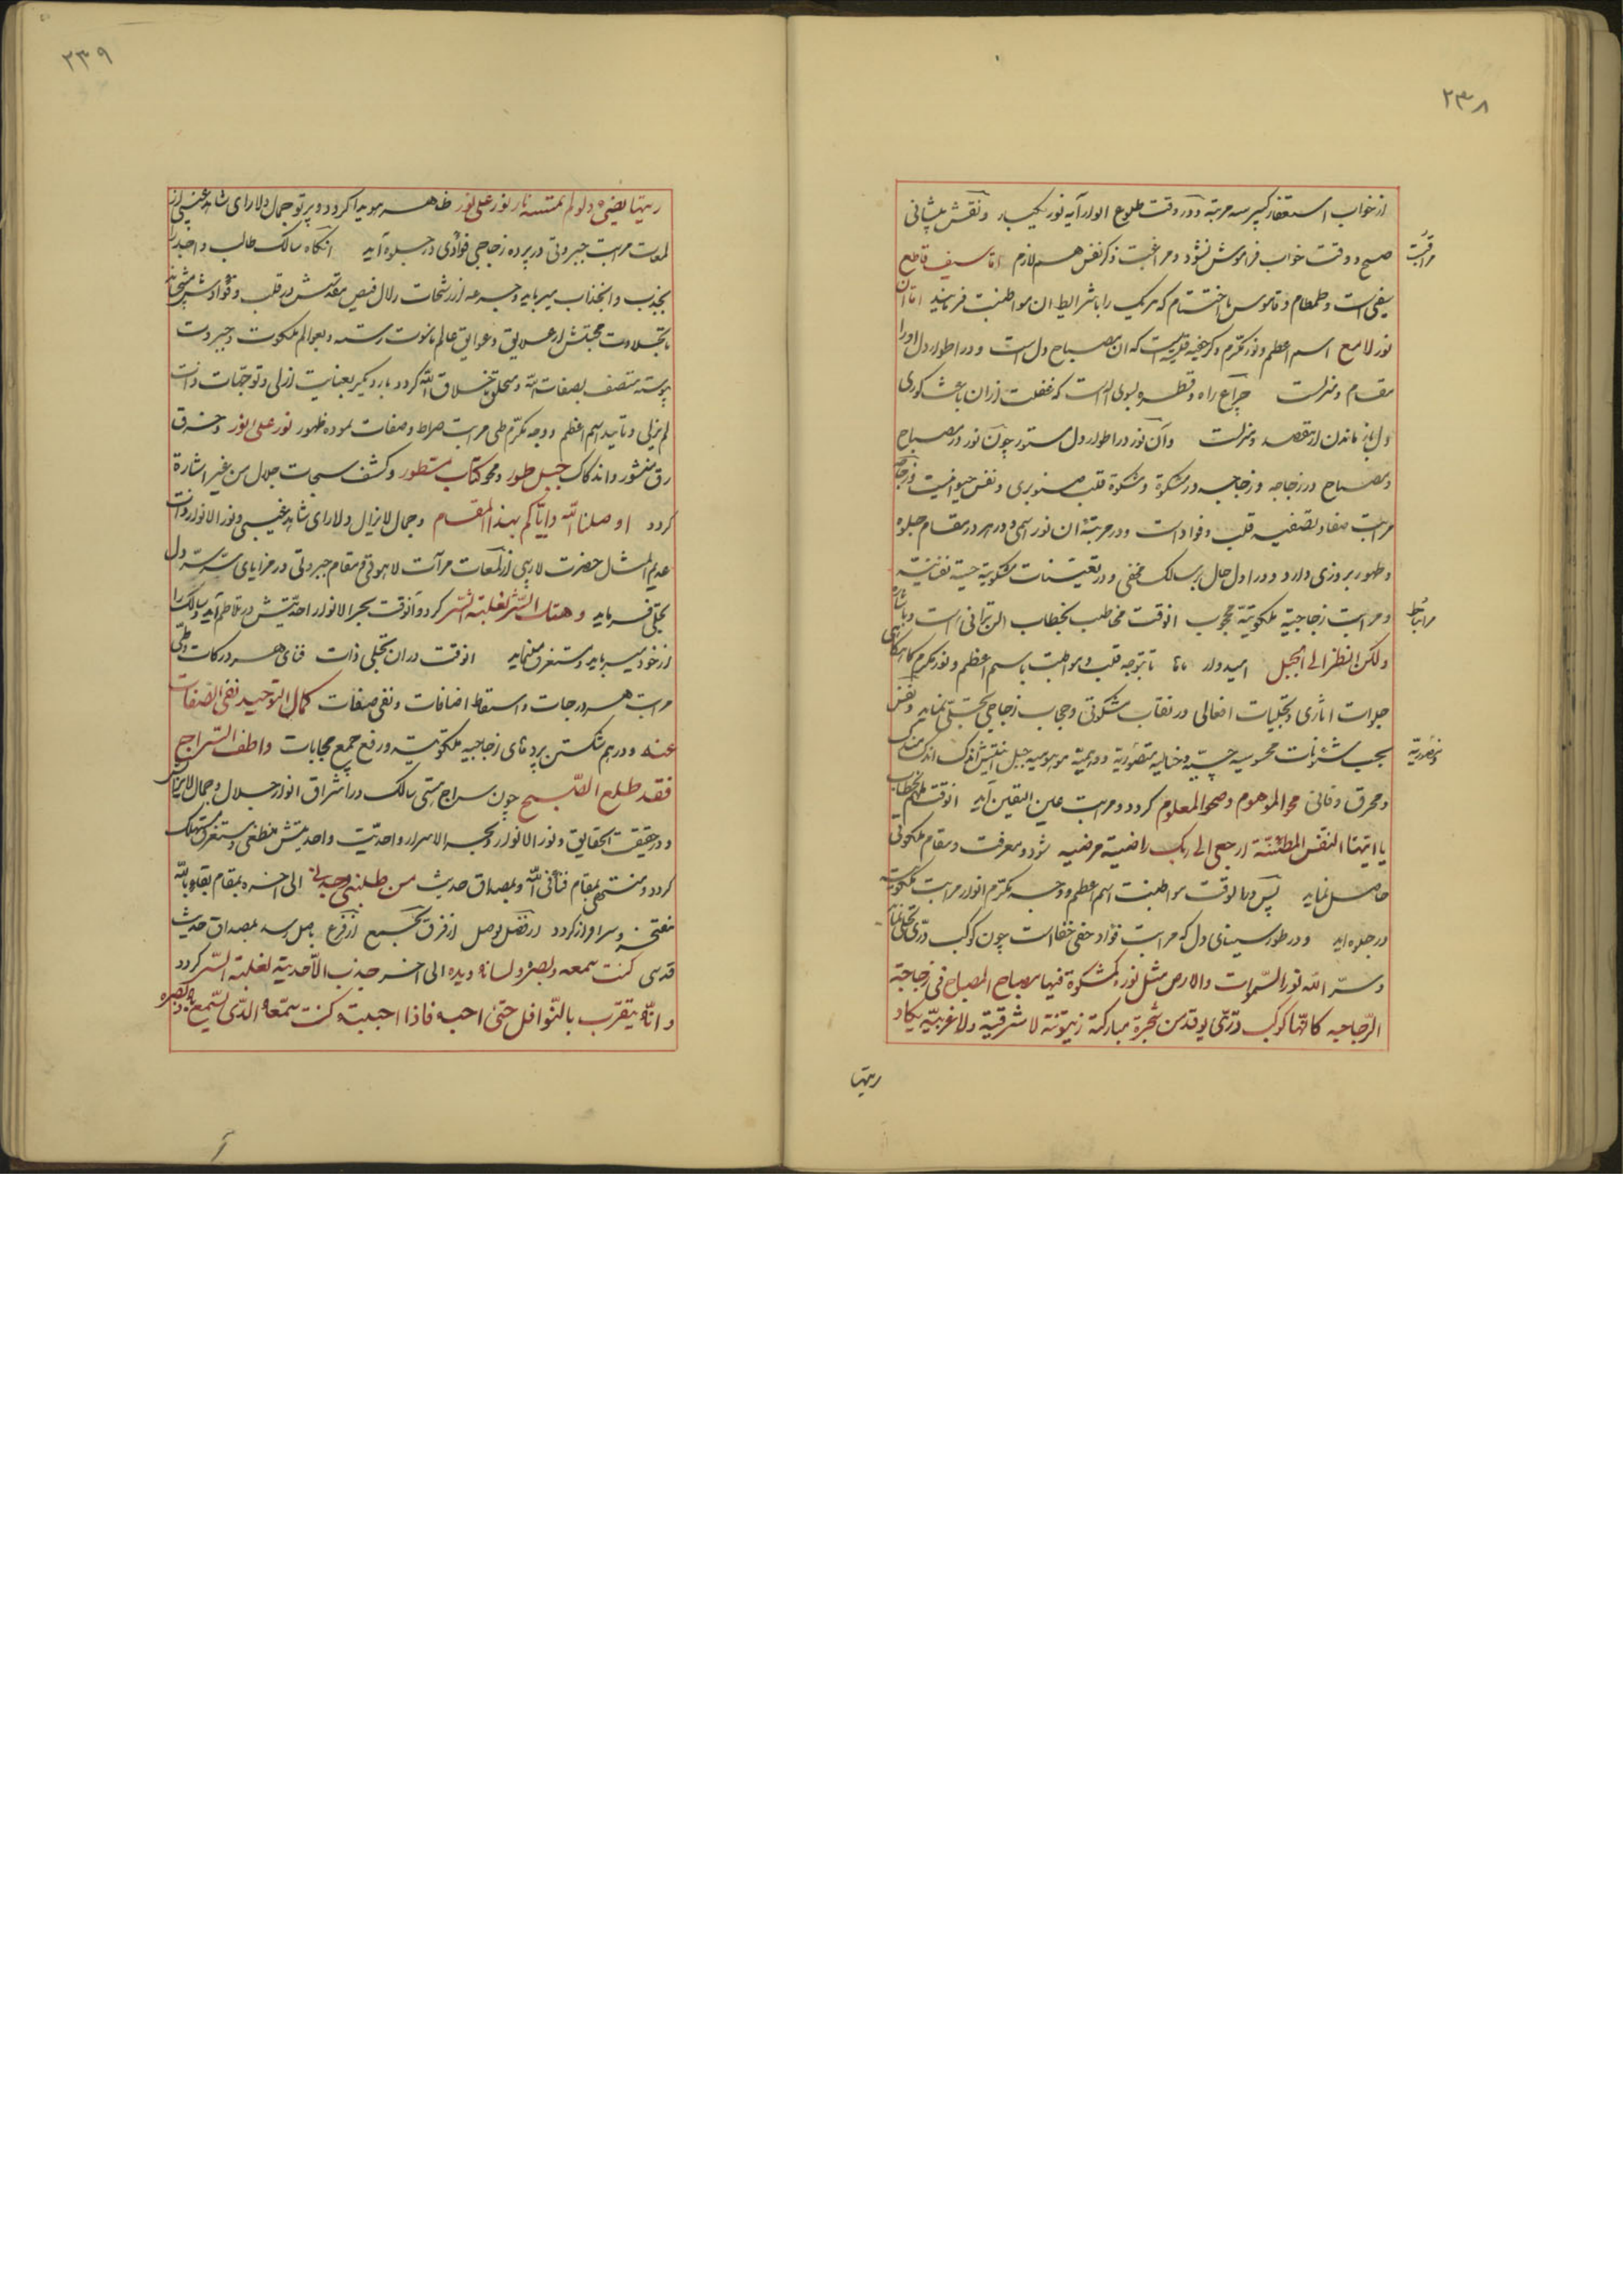 ۲۳۸
از خواب استغفار کبیر سه مرتبه و در وقت طلوع انوار آیه نور یکبار و نقش پیشانی
صبح و وقت خواب فراموش نشود و مراقبت ذکر نفس هم لازم اما سیف قاطع
مراقبت
سیفی است و طمطام و قاموس با اختتام که هریک را با شرایط ان مواظبت فرمایند اما ان
نور لامع اسم اعظم و نور مکرم و ذکر خفیه قلبیه است که ان مصباح دل است و در اطوار دل او را
مقام و منزلت چراغ راه و بسوی اله است که غفلت از ان باعث کوری
دل باز ماندن از مقصد و منزلست و آن نور در اطوار دل مستور چون نور در مصباح
و مصباح در زجاجه و زجاجه در مشکوة و مشکوة قلب صنوبری و نفس حیوانیست و زجاجه
مراتب صفا و تصفیه قلب و فواد است و در مرتبه ان نور اسمی و در هر مقام جلوه
و ظهور بروزی دارد و در اول حال بر سالک مخفی و در تعینات مشکوتیه حسیه نفسانیه
و مراتب زجاجیه ملکوتیه محجوب انوقت مخاطب بخطاب لن ترانی است و باشاره
مراتبا
ولکن انظر الی الجبل امیدوار تا بتوجه قلب و مواظبت باسم اعظم و نور مکرم گاهگاهی
جلوات اثاری و تجلیات افعالی در نقاب مشکوتی و حجاب زجاجی تجلی نماید و نفس
بحسب شئونات محسوسیه حسیه و خیالیه متصوریه و وهمیه موهومیه جبل انیتش اندک اندک مندک
و محرق و فانی محو الموهوم و صحو المعلوم گردد و مراتب عین الیقین آید انوقت ملهم بخطاب
یا ایتها النفس المطمئنة ارجعی الی ربک راضیة مرضیه شود و معرفت و مقام ملکوتی
حاصل نماید پس در انوقت مواظبت اسم اعظم و وجه مکرم انوار مراتب ملکوتیه
در جلوه اید و در طور سینای دل که مراتب فؤاد خفی خفا است چون کوکب دری تجلی نماید
و سر الله نور السموات والارض مثل نوره کمشکوة فیها مصباح المصباح فی زجاجة
الزجاجه کانها کوکب دری یوقد من شجرة مبارکة زیتونة لا شرقیة ولا غربیة یکاد
زیتها
۲۳۹
زیتها یضیء ولو لم تمسسه نار نور علی نور ظاهر هویدا گردد و پرتو جمال دلارای شاهد غیبی از
لمعات مراتب جبروتی در پرده زجاجی فوادی در جلوه آید انگاه سالک طالب و اجد را
بجذب و انجذاب میرباید و جرعه از رشحات زلال فیض مقدسش در قلب و فؤادش میچشاند
تا حلاوت محبتش از علایق و عوایق عالم ناسوت رسته و بعوالم ملکوت و جبروت
پیوسته متصف بصفات الله و متخلق باخلاق الله گردد و بار دیگر بعنایت ازلی و توجهات ذات
لم یزلی و تایید اسم اعظم و وجه مکرم طی مراتب صراط و صفات نموده ظهور نور علی نور و خرق
رق منشور و اندکاک جبل طور و محو کتاب مسطور و کشف سبحات جلال من غیر اشارة
گردد اوصلنا الله وایاکم بهذا المقام و جمال لایزال دلارای شاهد غیبی و نور الانوار ذات
عدیم المثال حضرت لاریبی از لمعات مرآت لاهوتی و مقام جبروتی در مرایای سر سر دل
تجلی فرماید و هتک الستر لغلبة السر گردد و انوقت بحر الانوار احدیتش در تلاطم آید و سالک را
از خود میرباید و مستغرق مینماید انوقت در ان تجلی ذات فنای هر درکات و طی
مراتب هر درجات و اسقاط اضافات و نفی صفات کمال التوحید نفی الصفات
عنه و در هم شکستن پرده‌های زجاجیه ملکوتیه و رفع جمیع حجابات واطف السراج
فقد طلع الصبح چون سراج هستی سالک در اشراق انوار جلال و جمال لایزال
و در حقیقت الحقایق و نور الانوار و بحر الاسرار واحدیت و احدیتش منطفی و مستغرق و مستهلک
گردد و منتهی بمقام فنا فی الله و بمصداق حدیث من طلبنی وجدنی الی اخره بمقام بقاء بالله
مفتخر و سرافراز گردد از فصل بوصل از فرق بجمع از فرع باصل رسد بمصداق حدیث
قدسی کنت سمعه وبصره ولسانه ویده الی اخر جذب الاحدیة لغلبة السر گردد
وانه یتقرب بالنوافل حتی احبه فاذا احببته کنت سمعه الذی یسمع به وبصره